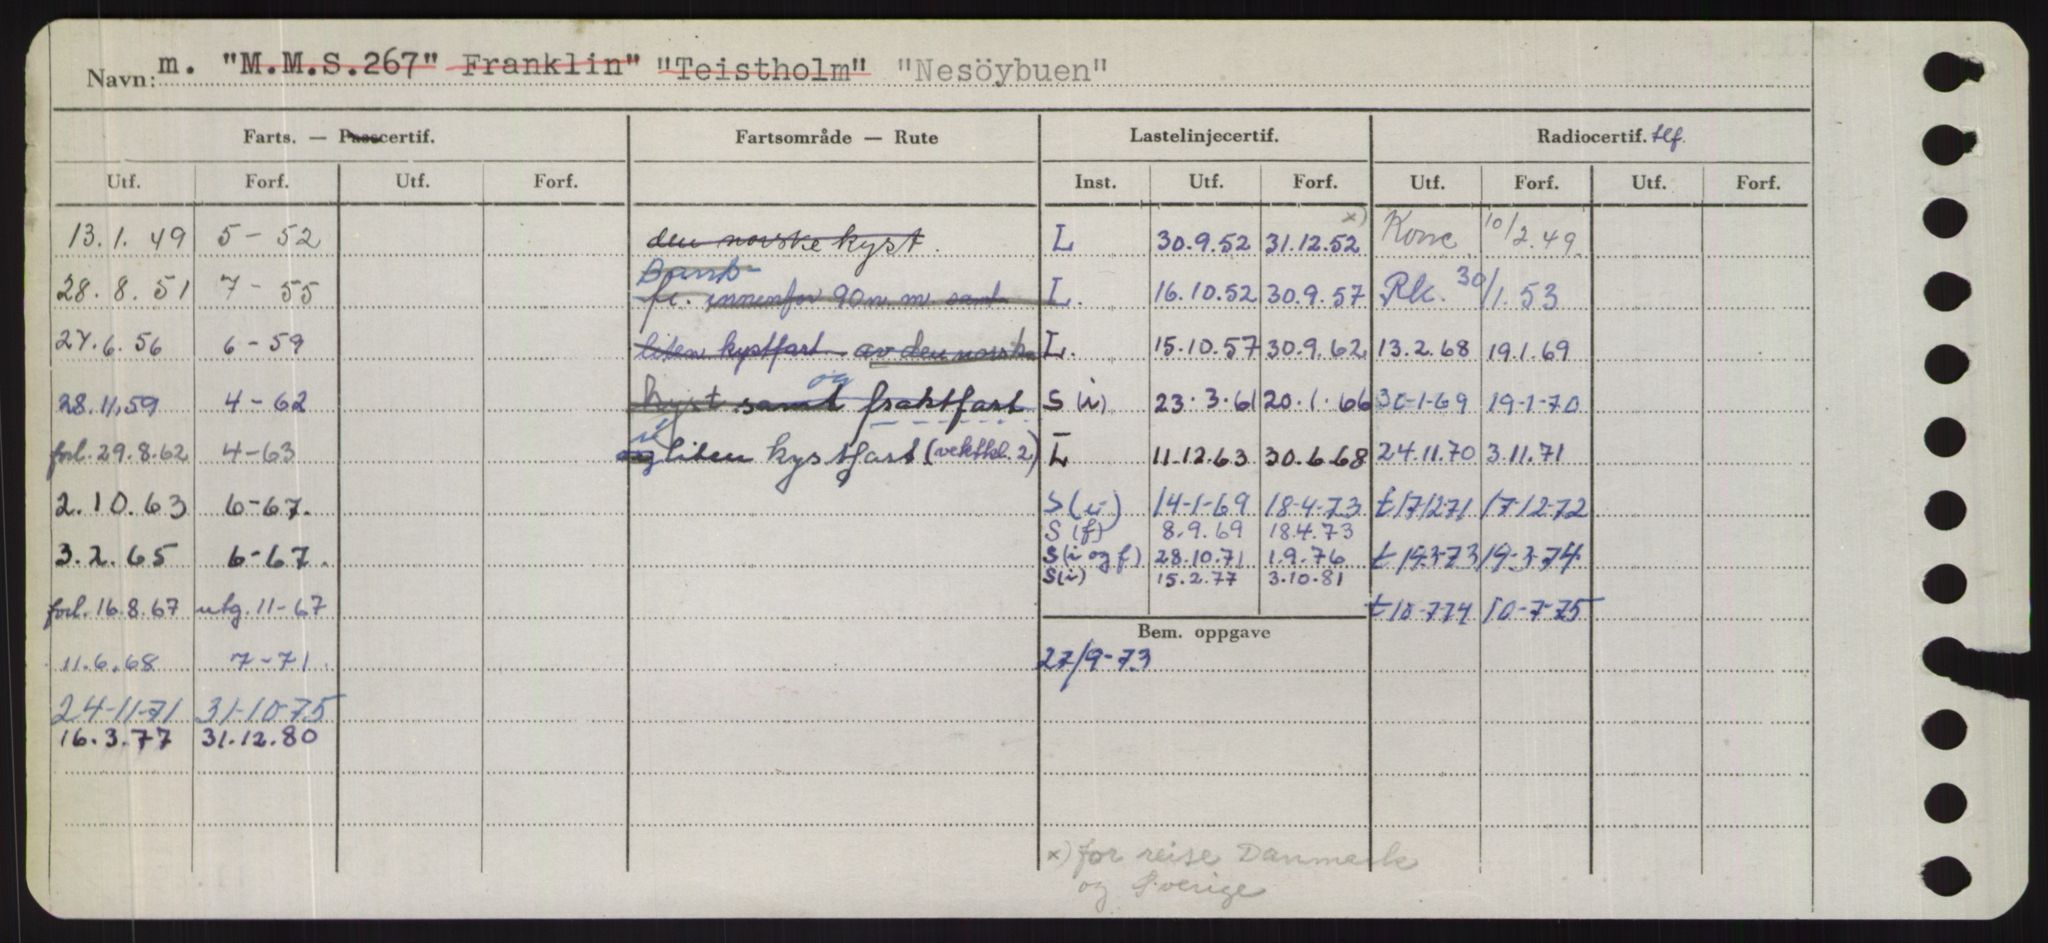 Navn: m. "M.M.S.267" Franklin" "Teistholm" "Nesöybuen"
Farts. — Passcertif. Fartsområde — Rute Lastelinjecertif. Radiocertif. tlf.
Utf. Forf. Utf. Forf. Inst. Utf. Forf. Utf. Forf. Utf. Forf.
13.1.49 5-52 den norske kyst. L 30.9.52 31.12.52 x) Konc 10/2.49
Bank-
28.8.51 7-55 fi. innenfor 90 n.m. samt L. 16.10.52 30.9.57 Rk. 30/1.53
27.6.56 6-59 liten kystfart av den norske L. 15.10.57 30.9.62 13.2.68 19.1.69
og
28.11.59 4-62 kyst samt fraktfart S (i) 23.3.61 20.1.66 30-1-69 19-1-70
i
forl. 29.8.62 4-63 og liten kystfart (vektkl. 2) L 11.12.63 30.6.68 24.11.70 3.11.71
2.10.63 6-67. S (i) 14-1-69 18-4-73 t 17/1271 17-12-72
S (f) 8.9.69 18.4.73
3.2.65 6-67. S (i og f) 28.10.71 1.9.76 t 19373 19-3-74
S(i) 15.2.77 3.10.81
forl. 16.8.67 utg. 11-67 t 10-774 10-7-75
Bem. oppgave
11.6.68 7-71. 27/9-73
24-11-71 31-10-75
16.3.77 31.12.80
x) for reise Danmark
og Sverige